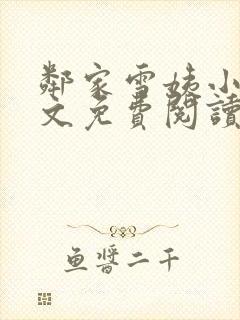 鄰家雪姨小
文免費閱讀
魚醬二千